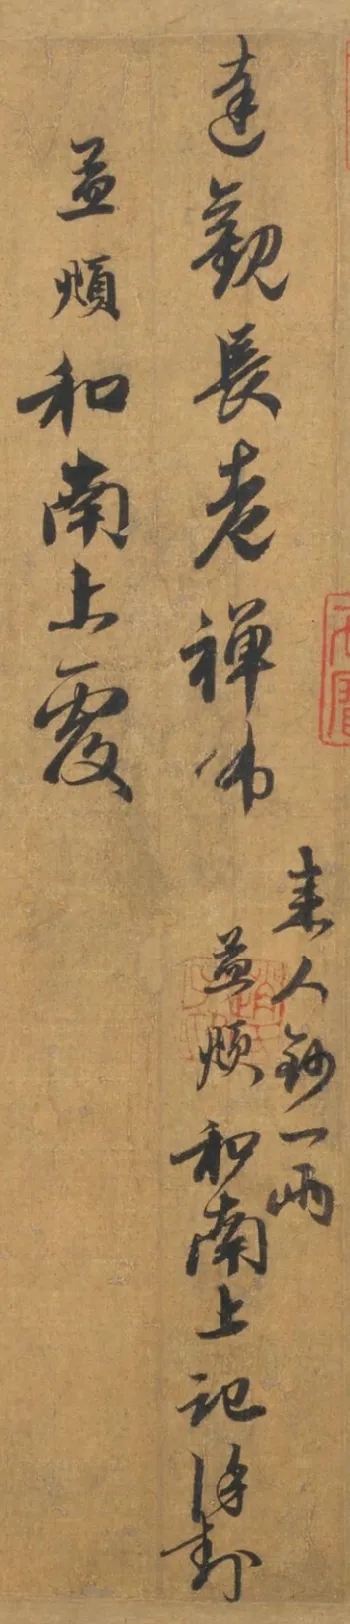 來人鈔一兩
達觀長老禪師 孟頫和南上記謹封
孟頫和南上覆